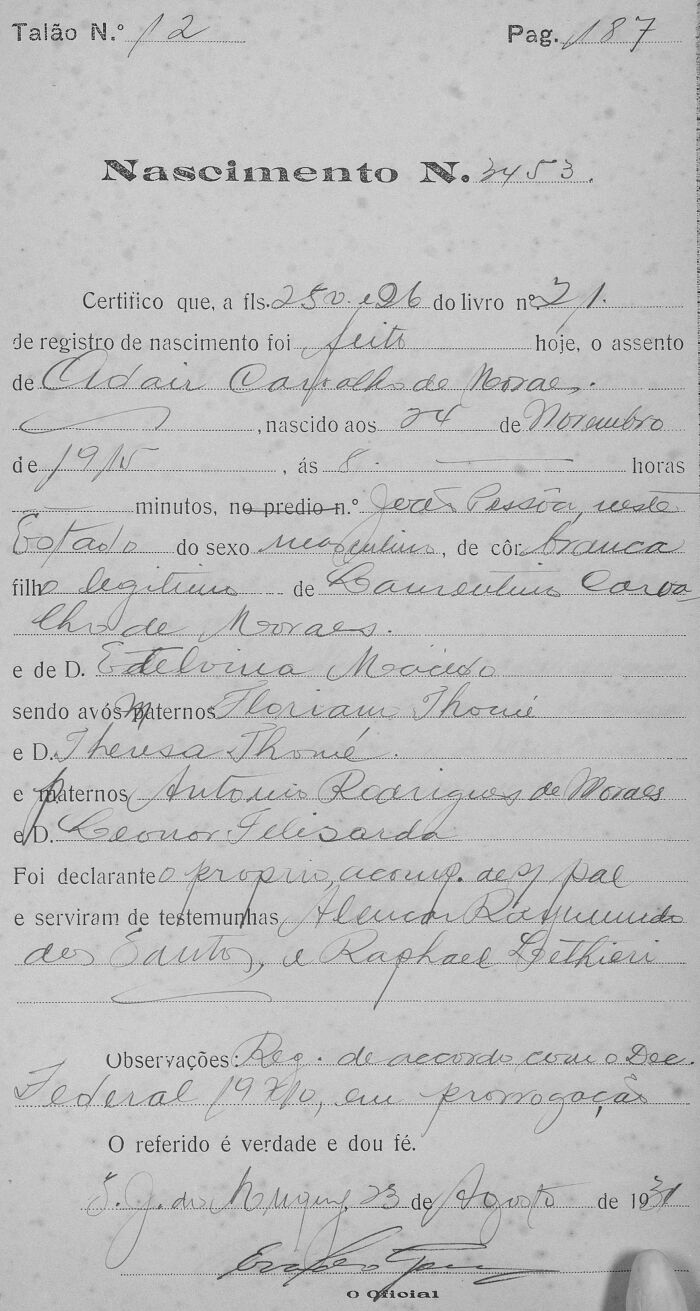 Talão N.º 12 Pag. 187
Nascimento N. 3453.
Certifico que, a fls. 250 e 26 do livro nº 21.
de registro de nascimento foi feito hoje, o assento
de Adair Carvalho de Moraes.
, nascido aos 24 de Novembro
de 1915, ás 8 horas
minutos, no predio n.º João Pessôa, neste
Estado do sexo masculino, de côr branca
filho legitimo de Laurentino Carva-
lho de Moraes.
e de D. Etelvina
sendo avós Maternos Floriano Thomé
e D. Theresa Thomé.
e paternos Antonio Rodrigues de Moraes
e D. Leonor Felisarda
Foi declarante o proprio, acomp. de s/ pae
e serviram de testemunhas Alencar Raymundo
dos Santos, e Raphael
Observações: Reg. de accordo com o Dec.
Federal 19710, em prorrogação
O referido é verdade e dou fé.
S. J. do 23 de Agosto de 1931
O Oficial